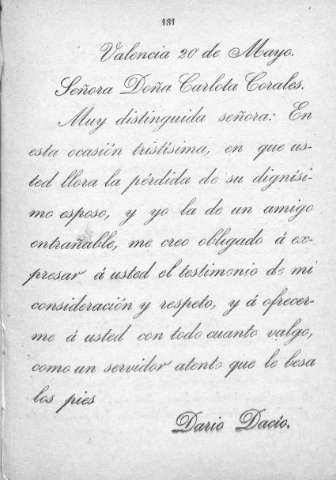 131
Valencia 20 de Mayo.
Señora Doña Carlota Corales.
Muy distinguida señora: En
esta ocasión tristísima, en que us-
ted llora la pérdida de su dignísi-
mo esposo, y yo la de un amigo
entrañable, me creo obligado á ex-
presar á usted el testimonio de mi
consideración y respeto, y á ofrecer-
me á usted con todo cuanto valgo,
como un servidor atento que le besa
los pies
Dario Dacio.